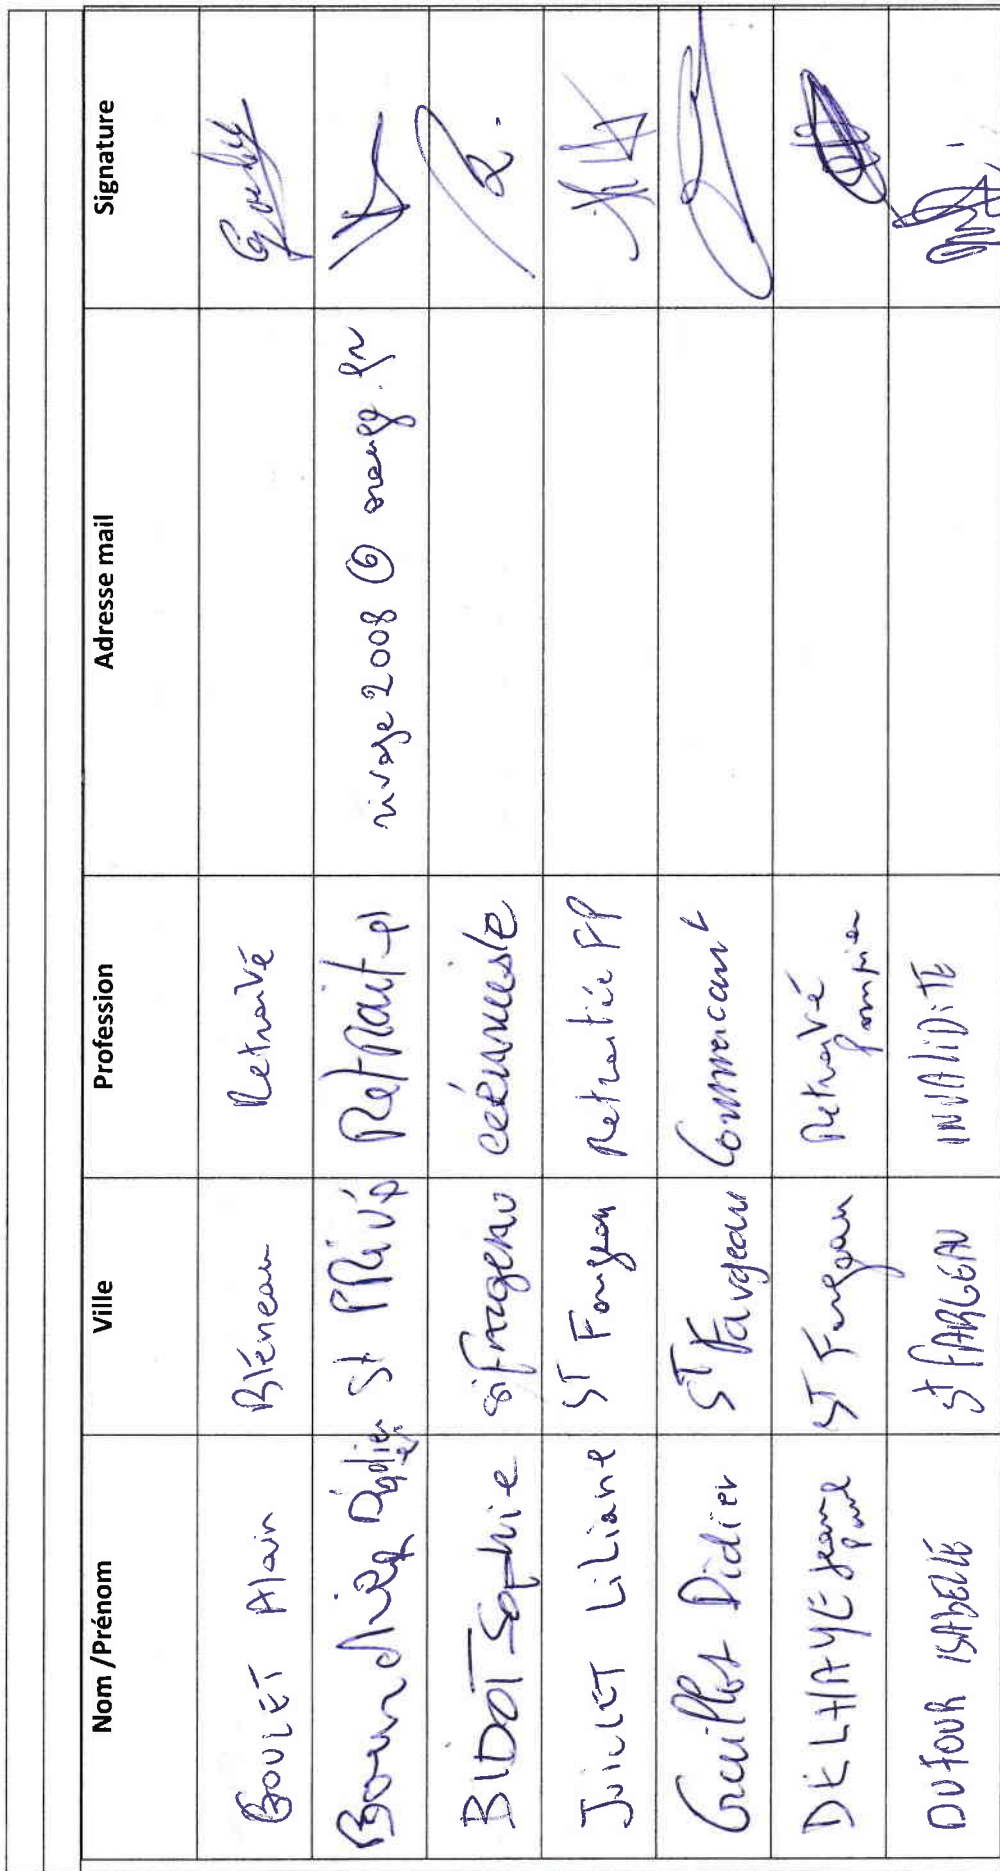 Nom /Prénom Ville Profession Adresse mail Signature
BOULET Alain Bléneau Retraité
Didier St PRivé Retrait rivage2008@orange.fr
BIDOT Sophie céramiste
JUILLET LiLiane ST Fargeau Retraitée FP
Guillot Didier ST Fargeau Commercant
DELHAYE Jean Paul ST Fargeau Retraité Pompier
DUFOUR ISABELLE St FARGEAU INVALIDITE